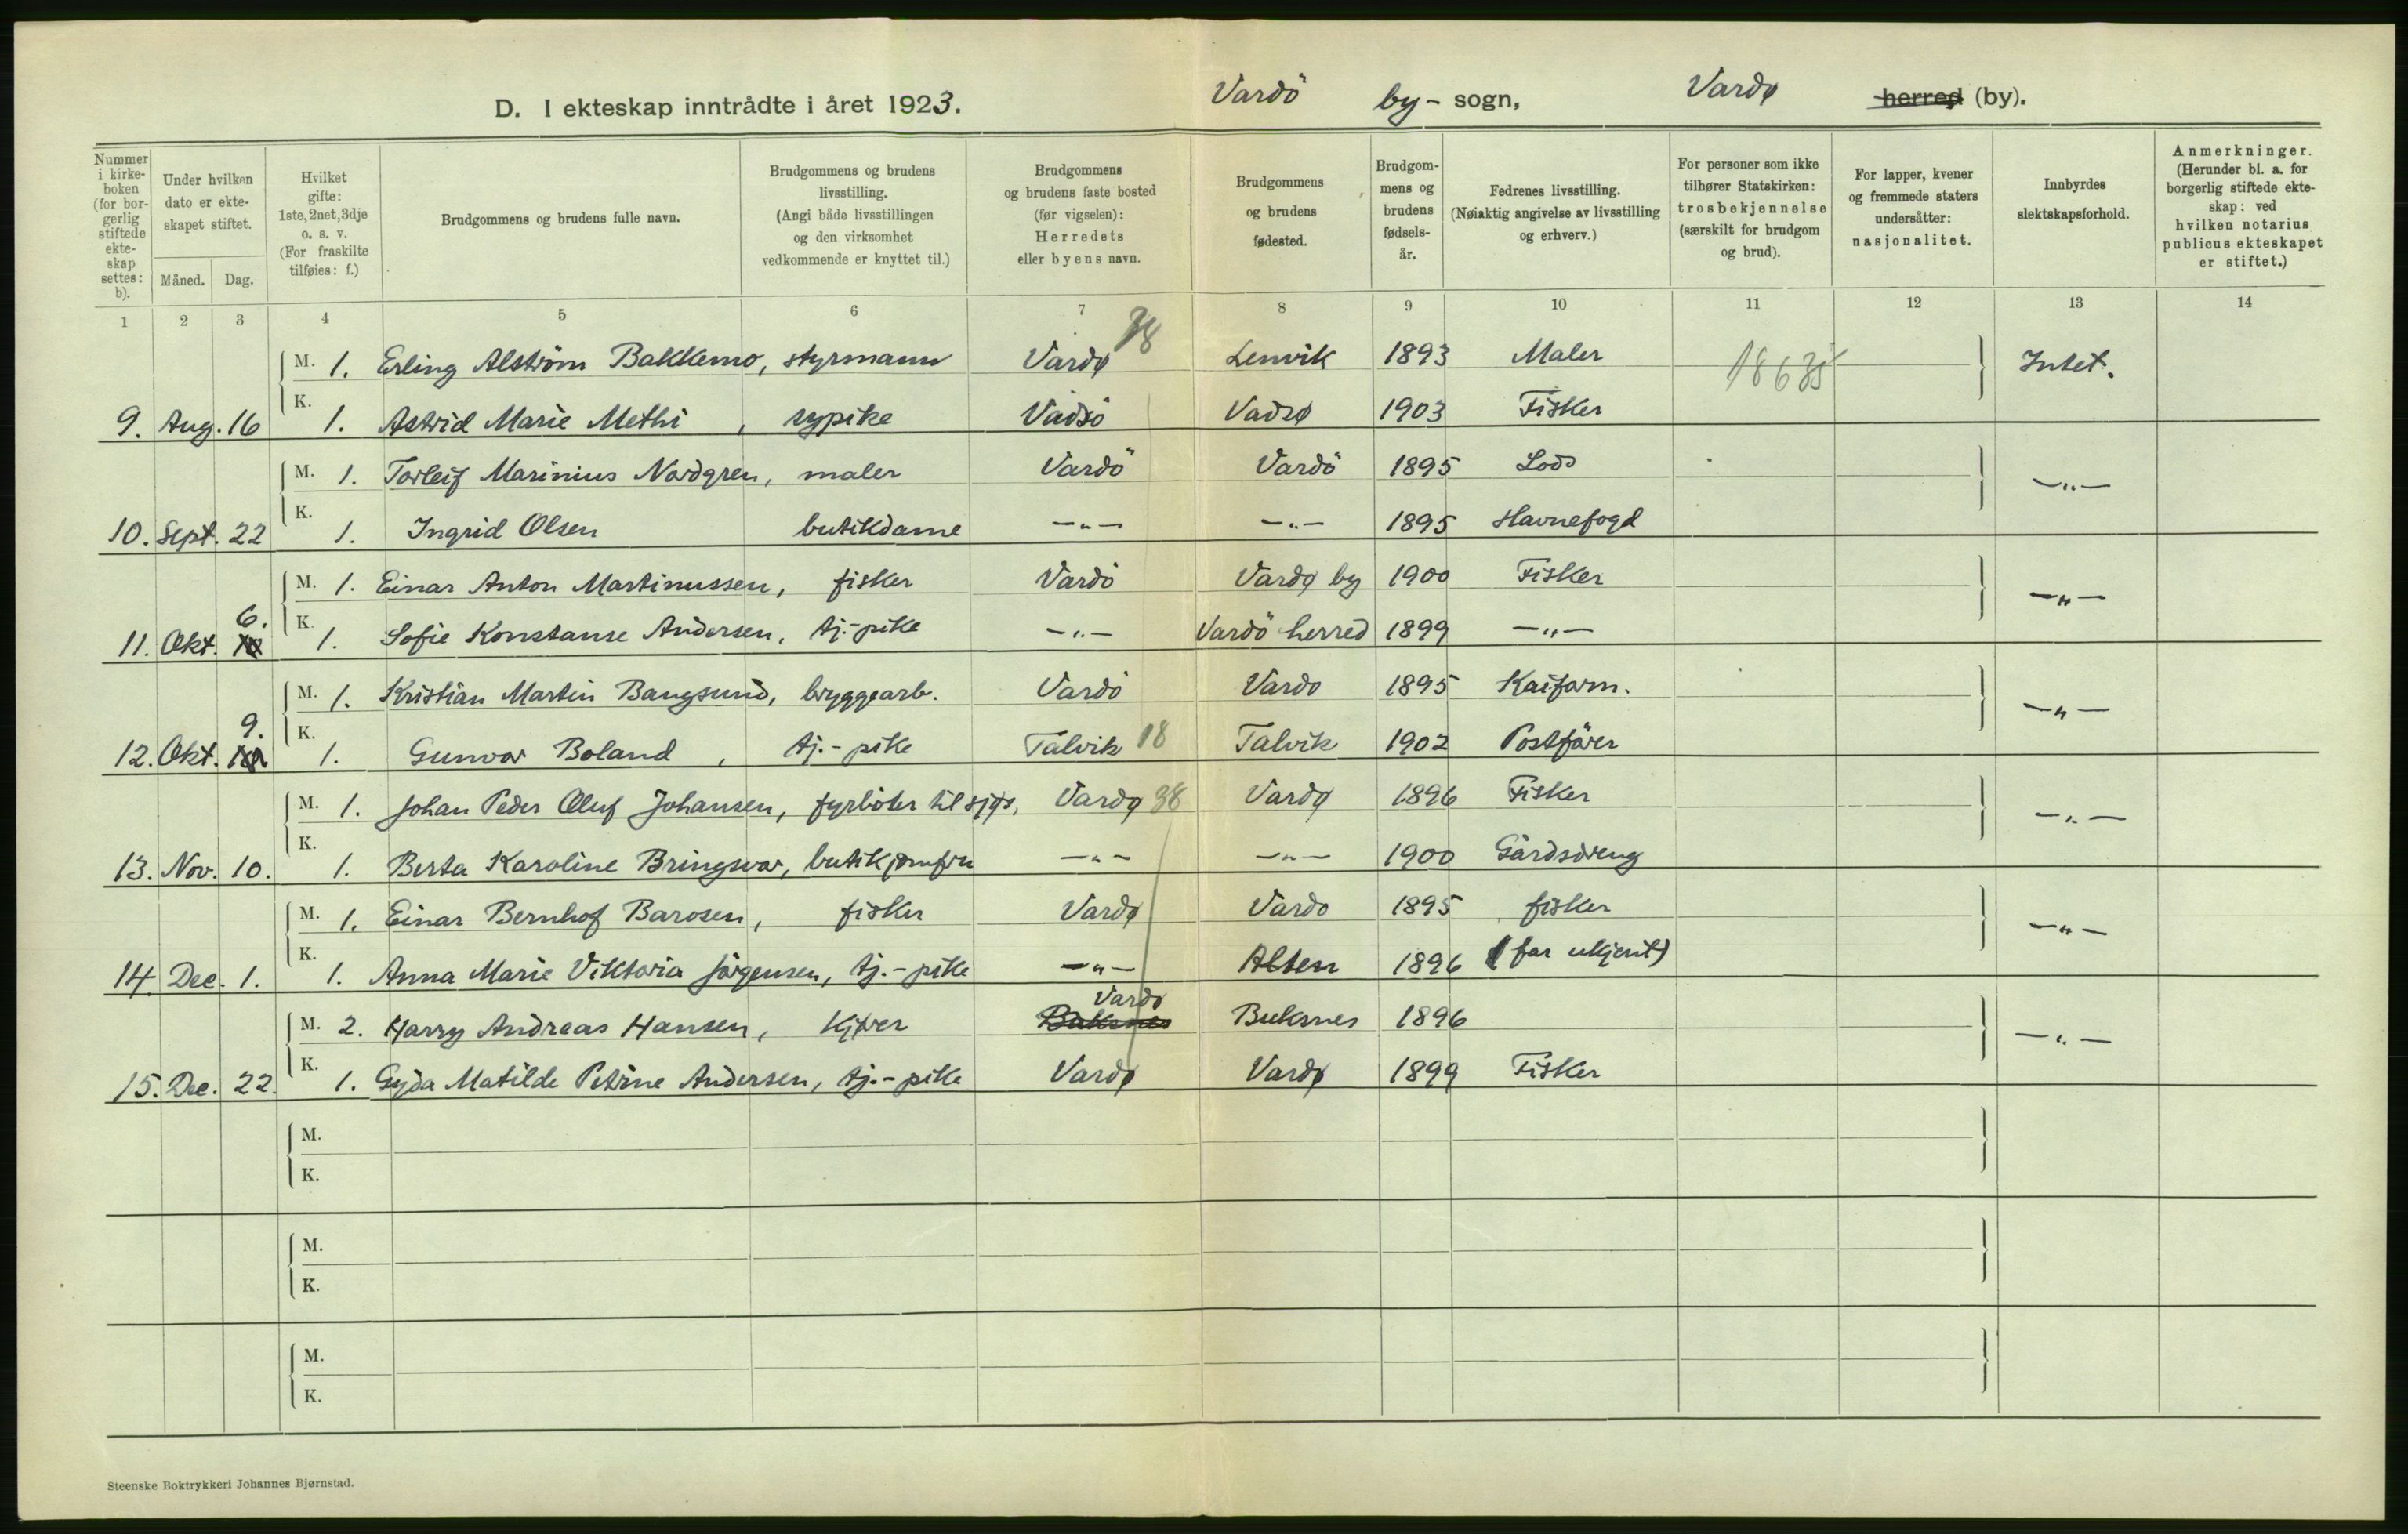 D. I ekteskap inntrådte i året 1923. Vardö by- sogn, Vardø herred (by).
Nummer i kirkeboken (for borgerlig stiftede ekteskap settes: b).
Under hvilken dato er ekteskapet stiftet.
Måned. Dag.
Hvilket gifte: 1ste, 2net, 3dje o. s. v. (For fraskilte tilføies: f.)
Brudgommens og brudens fulle navn.
Brudgommens og brudens livsstilling. (Angi både livsstillingen og den virksomhet vedkommende er knyttet til.)
Brudgommens og brudens faste bosted (før vigselen): Herredets eller byens navn.
Brudgommens og brudens fødested.
Brudgommens og brudens fødselsår.
Fedrenes livsstilling. (Nøiaktig angivelse av livsstilling og erhverv.)
For personer som ikke tilhører Statskirken: trosbekjennelse (særskilt for brudgom og brud).
For lapper, kvener og fremmede staters undersåtter: nasjonalitet.
Innbyrdes slektskapsforhold.
Anmerkninger. (Herunder bl. a. for borgerlig stiftede ekteskap: ved hvilken notarius publicus ekteskapet er stiftet.)
1 2 3 4 5 6 7 8 9 10 11 12 13 14
M. 1. Erling Alström Bakkemo, styrmann Vardø 38 Lenvik 1893 Maler Intet.
9. Aug. 16 K. 1. Astrid Marie Methi, sypike Vadsö Vadsø 1903 Fisker
M. 1. Torleif Marinius Nordgren, maler Vardö Vardö 1895 Lods —„—
10. Sept. 22 K. 1. Ingrid Olsen butikdame —„— —„— 1895 Havnefogd
M. 1. Einar Anton Martinussen, fisker Vardö Vardø by 1900 Fisker —„—
11. Okt. 6. K. 1. Sofie Konstanse Andersen, tj.-pike —„— Vardö herred 1899 —„—
M. 1. Kristian Martin Bangsund, bryggearb. Vardö Vardo 1895 Kaiform. —„—
12. Okt. 9. K. 1. Gunvor Boland, tj.-pike Talvik 18 Talvik 1902 Postförer
M. 1. Johan Peder Oluf Johansen, fyrböter til sjøs, Vardø 38 Vardø 1896 Fisker —„—
13. Nov. 10. K. 1. Berta Karoline Bringsvor, butikjomfru —„— —„— 1900 Gårdsdreng
M. 1. Einar Bernhof Barosen, fisker Vardø Vardo 1895 fisker —„—
14. Dec. 1. K. 1. Anna Marie Viktoria Jörgensen, tj.-pike —„— Alten 1896 (far ukjent)
Vardø
M. 2. Harry Andreas Hansen, Kjører Buksnes Buksnes 1896 —„—
15. Dec. 22. K. 1. Gyda Matilde Petrine Andersen, tj.-pike Vardø Vardø 1899 Fisker
M.
K.
M.
K.
M.
K.
Steenske Boktrykkeri Johannes Bjørnstad.